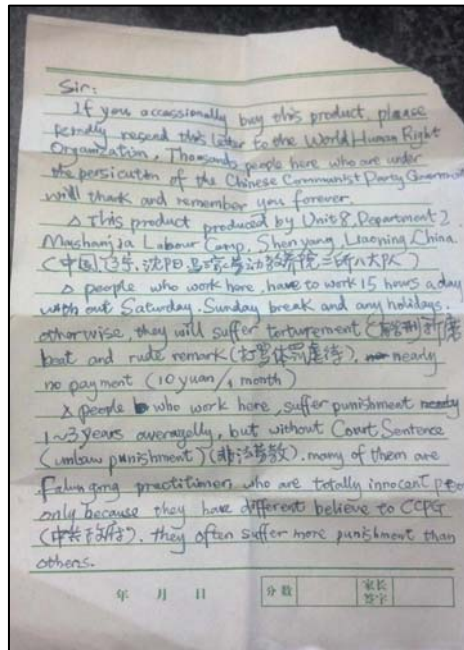 Sir:
If you occassionally buy this product, please
kindly resend this letter to the World Human Right
Organization. Thousands people here who are under
the persicution of the Chinese Communist Party Government
will thank and remember you forever.
△ This product produced by Unit 8, Department 2,
Mashanjia Labour Camp, Shenyang, Liaoning, China
(中国,辽宁,沈阳,马三家劳动教养院二所八大队)
△ people who work here, have to work 15 hours a day
with out Saturday, Sunday break and any holidays.
otherwise, they will suffer torturement
beat and rude remark (打骂体罚虐待). nearly
no payment (10 yuan/1 month)
△ people who work here, suffer punishment
1~3 years averagelly, but without Court Sentence
(unlaw punishment) (非法劳教). many of them are
Falungong practitioner, who are totally innocent
only because they have different believe to CCPG
(中共政府). they often suffer more punishment than
others.
年 月 日 分数 家长
签字